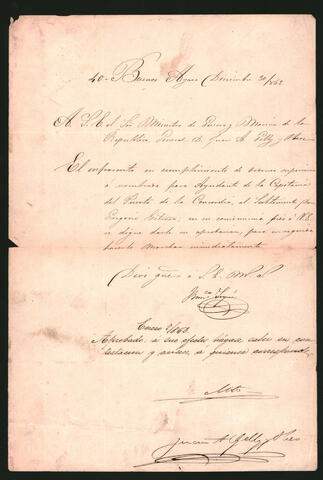 40 - Buenos Ayres Diciembre 30/862
A S.E. el Sor Ministro de Guerra y Marina de la
Republica, General D. Juan A. Gelly y Obes
El infrascrito en cumplimiento de ordenes
a nombrado para Ayudante de la Capitania
del Puerto de la Concordia, al
Eugenio en consecuencia pide á V.E.
se digne darle su aprobacion, para en seguida
hacerlo Marchar inmediatamente
Dios gue á S. E. M. a.
Enero 2/863
Aprobado: a sus efectos hágase saber en con
testacion y avísese a quienes corresponde.
Mitre
Juan A Gelly y Obes